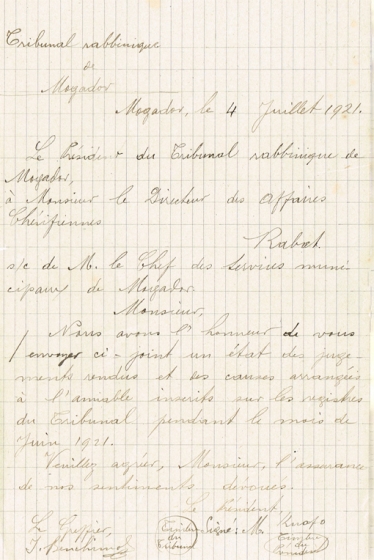 Tribunal rabbinique
de
Mogador
Mogador, le 4 Juillet 1921.
Le Président du Tribunal rabbinique de
Mogador,
à Monsieur le Directeur des affaires
Chérifiennes
Rabat
s/c de M. le Chef des Services muni
cipaux de Mogador
Monsieur,
Nous avons l'honneur de vous
envoyer ci-joint un état des juge-
ments rendus et des causes arrangées
à l'amiable inscrits sur les registres
du Tribunal pendant le mois de
Juin 1921.
Veuillez agréer, Monsieur, l'assurance
de nos sentiments dévoués.
Le Président,
Le Greffier,
Timbre du Tribunal
Signé: M. Knafo
Timbre du Président